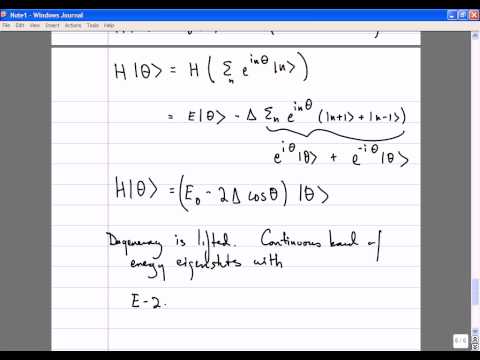 Note1 - Windows Journal
File Edit View Insert Actions Tools Help
H|θ> = H ( Σₙ e^{inθ} |n> )
= E|θ> - Δ Σₙ e^{inθ} (|n+1> + |n-1>)
e^{iθ}|θ> + e^{-iθ}|θ>
H|θ> = (E₀ - 2Δ cosθ) |θ>
Degeneracy is lifted. Continuous band of
energy eigenstates with
E-2.
6 / 6